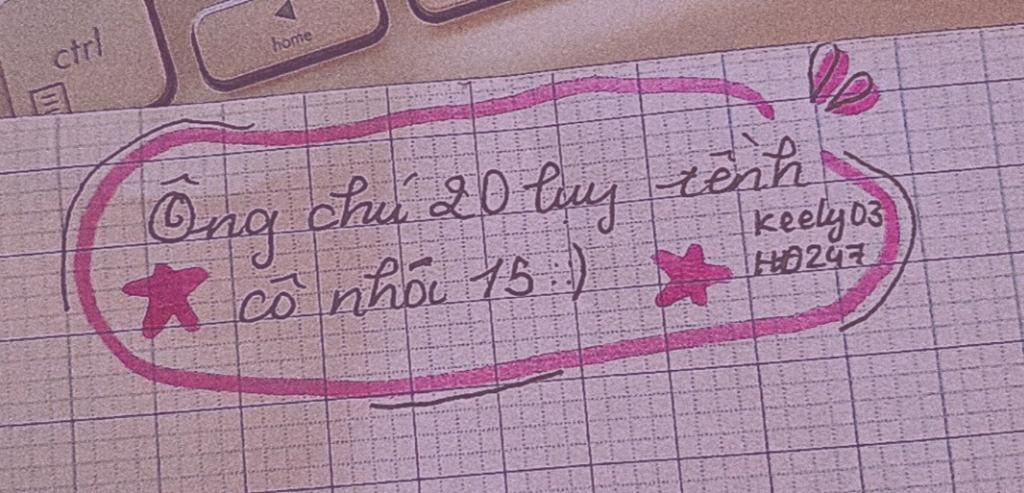 ctrl
home
Ông chú 20 luy tềnh
cô nhõi 15 :)
Keely03
247